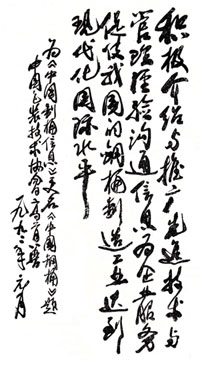 积极介绍与推广先进技术与
管理经验沟通信息为企业服务
促使我国的钢桶制造工业达到
现代化国际水平
为《中国制桶信息》更名《中国钢桶》题
中国包装技术协会
一九九二年元月